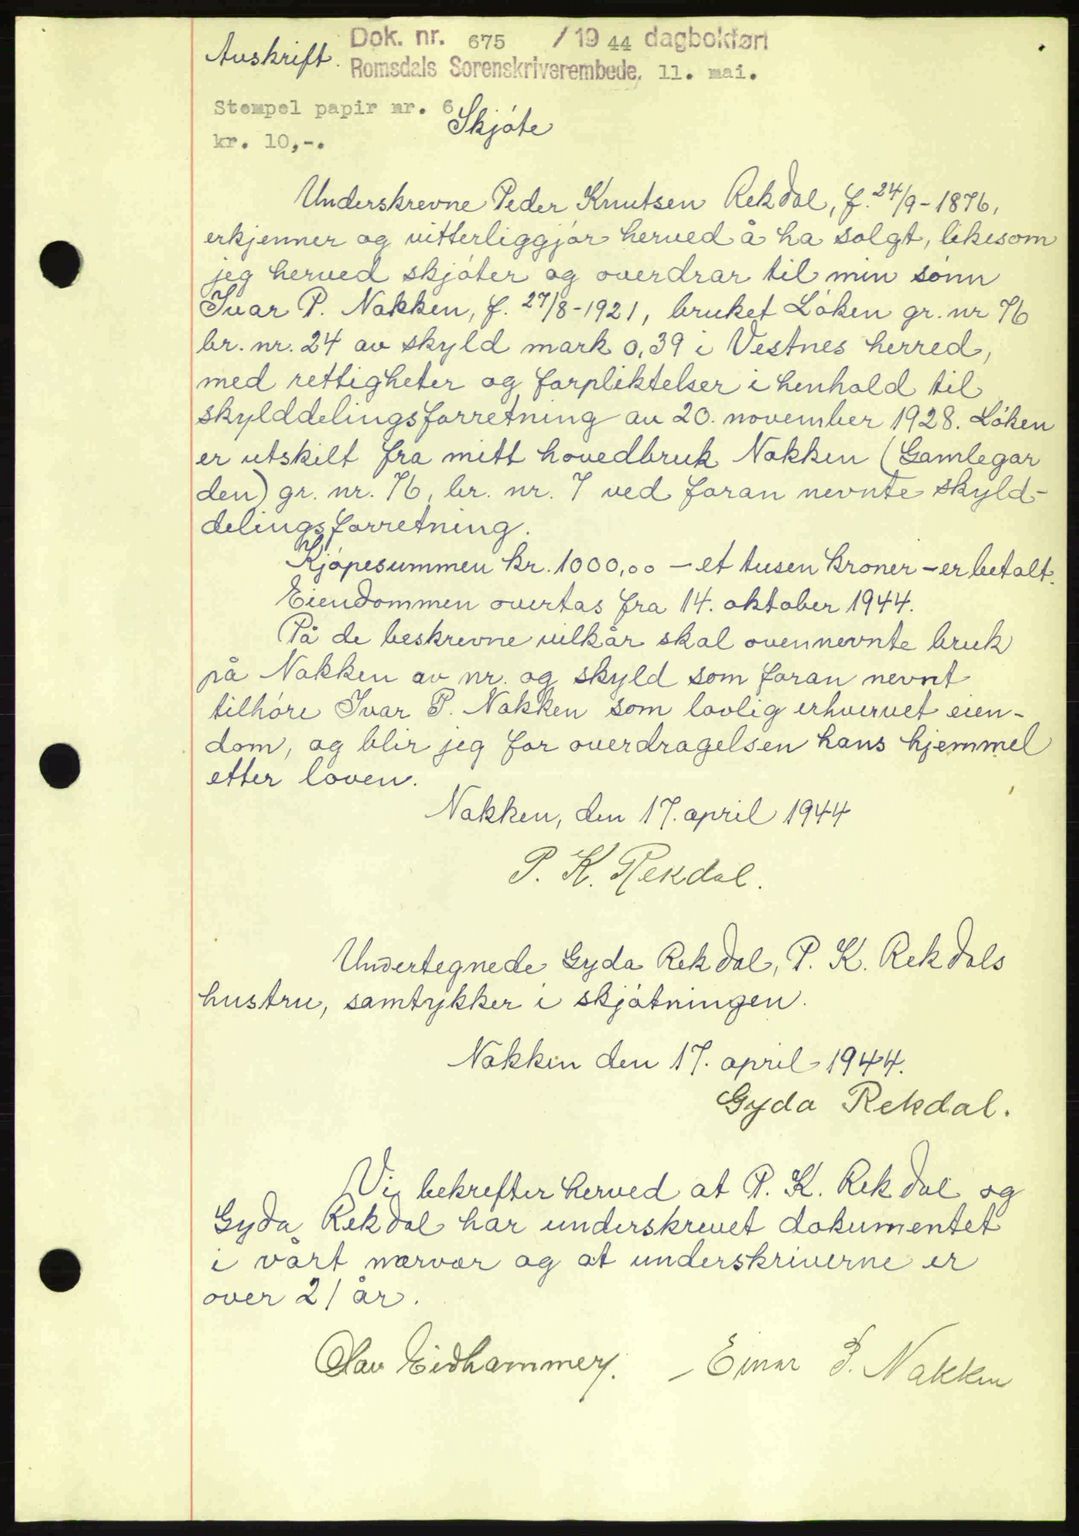 Avskrift. Dok. nr. 675 / 19 44 dagbokført
Romsdals Sorenskriverembede, 11. mai.
Stempel papir nr. 6
kr. 10,-.
Skjóte
Underskrevne Peder Knutsen Rekdal, f. 24/9-1876,
erkjenner og vitterliggjór herved å ha solgt, likesom
jeg herved skjóter og overdrar til min sónn
Ivar P. Nakken, f. 27/8-1921, bruket Lóken gr. nr 76
br. nr. 24 av skyld mark 0,39 i Vestnes herred,
med rettigheter og forpliktelser i henhold til
skylddelingsforretning av 20. november 1928. Lóken
er utskilt fra mitt hovedbruk Nakken (Gamlegar
den) gr. nr. 76, br. nr. 7 ved foran nevnte skyld-
delingsforretning.
Kjópesummen kr. 1000,00 – et tusen kroner – er betalt.
Eiendommen overtas fra 14. oktober 1944.
På de beskrevne vilkår skal ovennevnte bruk
på Nakken av nr. og skyld som foran nevnt
tilhóre Ivar P. Nakken som lovlig erhvervet eien-
dom, og blir jeg for overdragelsen hans hjemmel
etter loven.
Nakken, den 17. april 1944
P. K. Rekdal.
Undertegnede Gyda Rekdal, P. K. Rekdals
hustru, samtykker i skjótningen.
Nakken den 17. april 1944.
Gyda Rekdal.
Vi bekrefter herved at P. K. Rekdal og
Gyda Rekdal har underskrevet dokumentet
i vårt nærvær og at underskriverne er
over 21 år.
Olav Eidhammer. – Einar P. Nakken